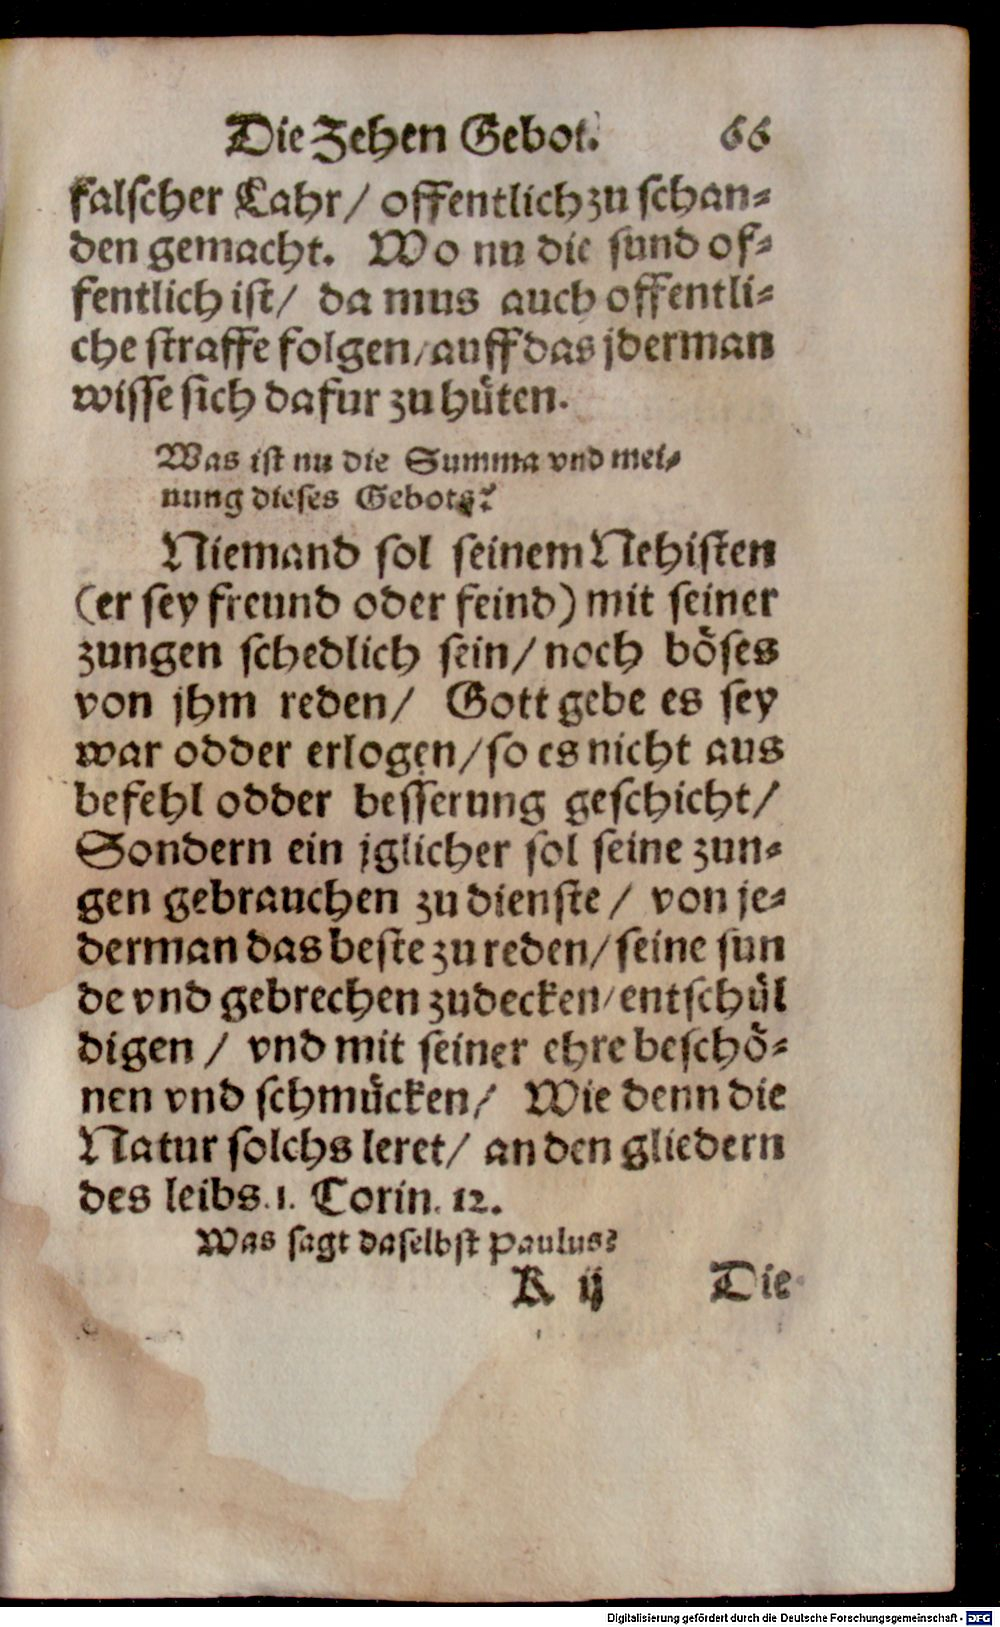 Die Zehen Gebot. 66
falscher Lahr/ offentlich zu schan⸗
den gemacht. Wo nu die sund of⸗
fentlich ist/ da mus auch offentli⸗
che straffe folgen/ auff das jderman
wisse sich dafur zu huͤten.
Was ist nu die Summa vnd mei⸗
nung dieses Gebots?
Niemand sol seinem Nehisten
(er sey freund oder feind) mit seiner
zungen schedlich sein/ noch boͤses
von jhm reden/ Gott gebe es sey
war odder erlogen/ so es nicht aus
befehl odder besserung geschicht/
Sondern ein jglicher sol seine zun⸗
gen gebrauchen zu dienste/ von je⸗
derman das beste zu reden/ seine sun
de vnd gebrechen zudecken/ entschuͤl
digen/ vnd mit seiner ehre beschoͤ⸗
nen vnd schmuͤcken/ Wie denn die
Natur solchs leret/ an den gliedern
des leibs. 1. Corin. 12.
Was sagt daselbst Paulus?
K ij Die
Digitalisierung gefördert durch die Deutsche Forschungsgemeinschaft - DFG